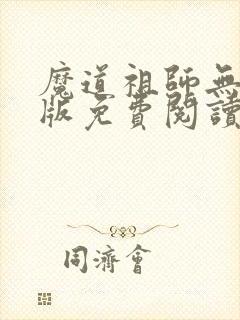 魔道祖師無
版免費閱讀
同濟會